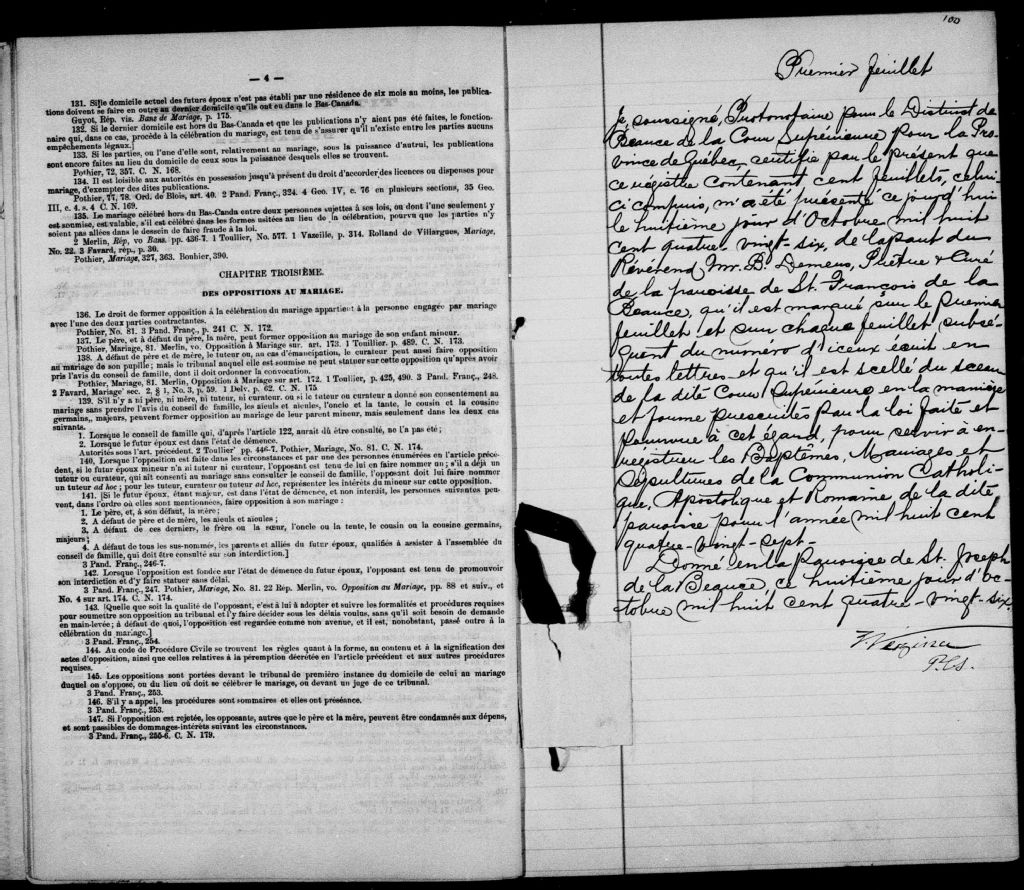 — 4 —
131. Si le domicile actuel des futurs époux n'est pas établi par une résidence de six mois au moins, les publica-
tions doivent se faire en outre au dernier domicile qu'ils ont eu dans le Bas-Canada.
Guyot, Rép. vis. Bans de Mariage, p. 175.
132. Si le dernier domicile est hors du Bas-Canada et que les publications n'y aient pas été faites, le fonction-
naire qui, dans ce cas, procède à la célébration du mariage, est tenu de s'assurer qu'il n'existe entre les parties aucuns
empêchements légaux.]
133. Si les parties, ou l'une d'elle sont, relativement au mariage, sous la puissance d'autrui, les publications
sont encore faites au lieu du domicile de ceux sous la puissance desquels elles se trouvent.
Pothier, 72, 357. C. N. 168.
134. Il est loisible aux autorités en possession jusqu'à présent du droit d'accorder des licences ou dispenses pour
mariage, d'exempter des dites publications.
Pothier, 77, 78. Ord. de Blois, art. 40. 2 Pand. Franç., 324. 4 Geo. IV, c. 76 en plusieurs sections, 35 Geo.
III, c. 4. s. 4 C. N. 169.
135. Le mariage célébré hors du Bas-Canda entre deux personnes sujettes à ses lois, ou dont l'une seulement y
est soumise, est valable, s'il est célébré dans les formes usitées au lieu de la célébration, pourvu que les parties n'y
soient pas allées dans le dessein de faire fraude à la loi.
2 Merlin, Rép, vo Bans. pp. 436-7. 1 Toullier, No. 577. 1 Vazeille, p. 314. Rolland de Villargues, Mariage,
No. 22. 3 Favard, rép., p. 30.
Pothier, Mariage, 327, 363. Bouhier, 390.
CHAPITRE TROISIÈME.
DES OPPOSITIONS AU MARIAGE.
136. Le droit de former opposition à la célébration du mariage appartient à la personne engagée par mariage
avec l'une des deux parties contractantes.
Pothier, No. 81. 3 Pand. Franç., p. 241 C. N. 172.
137. Le père, et à défaut du père, la mère, peut former opposition au mariage de son enfant mineur.
Pothier, Mariage, 81. Merlin, vo. Opposition à Mariage sur. art. 173. 1 Touillier. p. 489. C. N. 173.
138. A défaut de père et de mère, le tuteur ou, au cas d'émancipation, le curateur peut aussi faire opposition
au mariage de son pupille; mais le tribunal auquel elle est soumise ne peut statuer sur cette opposition qu'après avoir
pris l'avis du conseil de famille, dont il doit ordonner la convocation.
Pothier, Mariage, 81. Merlin, Opposition à Mariage sur art. 172. 1 Toullier, p. 425, 490. 3 Pand. Franç., 248.
2 Favard, Mariage sec. 2, § 1, No. 3, p. 59. 1 Delv. p. 62. C. N. 175
139. S'il n'y a ni père, ni mère, ni tuteur, ni curateur, ou si le tuteur ou curateur a donné son consentement au
mariage sans prendre l'avis du conseil de famille, les aïeuls et aïeules, l'oncle et la tante, le cousin et la cousine
germains, majeurs, peuvent former opposition au mariage de leur parent mineur, mais seulement dans les deux cas
suivants.
1. Lorsque le conseil de famille qui, d'après l'article 122, aurait dû être consulté, ne l'a pas été;
2. Lorsque le futur époux est dans l'état de démence.
Autorités sous l'art. précédent. 2 Toullier pp. 446-7. Pothier, Mariage, No. 81. C. N. 174.
140. Lorsque opposition est faite dans les circonstances et par une des personnes énumérées en l'article précé-
dent, si le futur époux mineur n'a ni tuteur ni curateur, l'opposant est tenu de lui en faire nommer un; s'il a déjà un
tuteur ou curateur, qui ait consenti au mariage sans consulter le conseil de famille, l'opposant doit lui faire nommer
un tuteur ad hoc; pour les tuteur, curateur ou tuteur ad hoc, représenter les intérêts du mineur sur cette opposition.
141. [Si le futur époux, étant majeur, est dans l'état de démence, et non interdit, les personnes suivantes peu-
vent, dans l'ordre où elles sont mentionnées, faire opposition à son mariage:
1. Le père, et, à son défaut, la mère;
2. A défaut de père et de mère, les aïeuls et aïeules;
3. A défaut de ces dernier, le frère ou la sœur, l'oncle ou la tente, le cousin ou la cousine germains,
majeurs;
4. A défaut de tous les sus-nommés, les parents et alliés du futur époux, qualifiés à assister à l'assemblée du
conseil de famille, qui doit être consulté sur son interdiction.]
3 Pand. Franç., 246-7.
142. Lorsque l'opposition est fondée sur l'état de démence du futur époux, l'opposant est tenu de promouvoir
son interdiction et d'y faire statuer sans délai.
3 Pand. Franç., 247. Pothier, Mariage, No. 81. 22 Rep. Merlin, vo. Opposition au Mariage, pp. 88 et suiv., et
No. 4 sur art. 174. C. N. 174.
143. [Quelque que soit la qualité de l'opposant, c'est à lui à adopter et suivre les formalités et procédures requises
pour soumettre son opposition au tribunal et l'y faire décider sous les délais voulus, sans qu'il soit besoin de demande
en main-levée; à défaut de quoi, l'opposition est regardée comme non avenue, et il est, nonobstant, passé outre à la
célébration du mariage.]
3 Pand. Franç., 254.
144. Au code de Procédure Civile se trouvent les règles quant à la forme, au contenu et à la signification des
actes d'opposition, ainsi que celles relatives à la péremption décrétée en l'article précédent et aux autres procédures
requises.
145. Les oppositions sont portées devant le tribunal de première instance du domicile de celui au mariage
duquel on s'oppose, ou du lieu où doit se célébrer le mariage, ou devant un juge de ce tribunal.
3 Pand. Franç., 253.
146. S'il y a appel, les procédures sont sommaires et elles ont préséance.
3 Pand. Franç., 253.
147. Si l'opposition est rejetée, les opposants, autres que le père et la mère, peuvent être condamnés aux dépens,
et sont passibles de dommages-intérêts suivant les circonstances.
3 Pand. Franç., 255-6. C. N. 179.
100
Premier feuillet
Je, soussigné, Protonotaire pour le District de
Beauce de la Cour Supérieure pour la Pro-
vince de Québec, certifie par le présent que
ce régistre contenant cent feuillets, celui-
ci compris, m'a été présenté ce jourd'hui
le huitième jour d'Octobre mil huit
cent quatre-vingt-six, de la part du
Révérend Mr. B. Demers, Prêtre & Curé
de la paroisse de St. François de la
Beauce, qu'il est marqué sur le premier
feuillet et sur chaque feuillet subsé-
quent du numéro d'iceux écrit en
toutes lettres et qu'il est scellé du sceau
de la dite Cour Supérieure en la manière
et forme prescrites par la loi faite et
pourvue à cet égard, pour servir à en-
registrer les Baptêmes, Mariages et
Sépultures de la Communion Catholi-
que, Apostolique et Romaine de la dite
paroisse pour l'année mil huit cent
quatre-vingt-sept-
Donné en la Paroisse de St. Joseph
de la Beauce, ce huitième jour d'Oc-
tobre mil huit cent quatre-vingt-six.
Vézina
P.C.S.